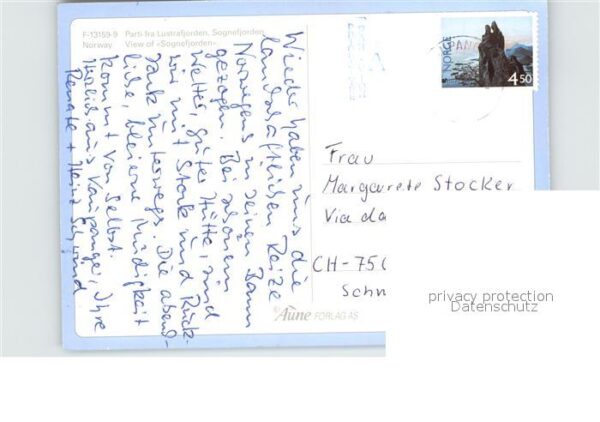 F-13159-9
Norway
Parti fra Lustrafjorden, Sognefjorden
View of «Sognefjorden»
Wieder haben uns die
landschaftlichen Reize
Norwegens in seinen Bann
gezogen. Bei schönem
Wetter, guter Hütte, sind
wir mit Stock und Rück-
sack unterwegs. Die abend-
liche, bleierne Müdigkeit
kommt von selbst.
Herzlich aus Ihre
Renate + Heinz
NORGE
4 50
Frau
Margarete Stocker
Via da
CH-750
Schw
Aune FORLAG AS
privacy protection
Datenschutz